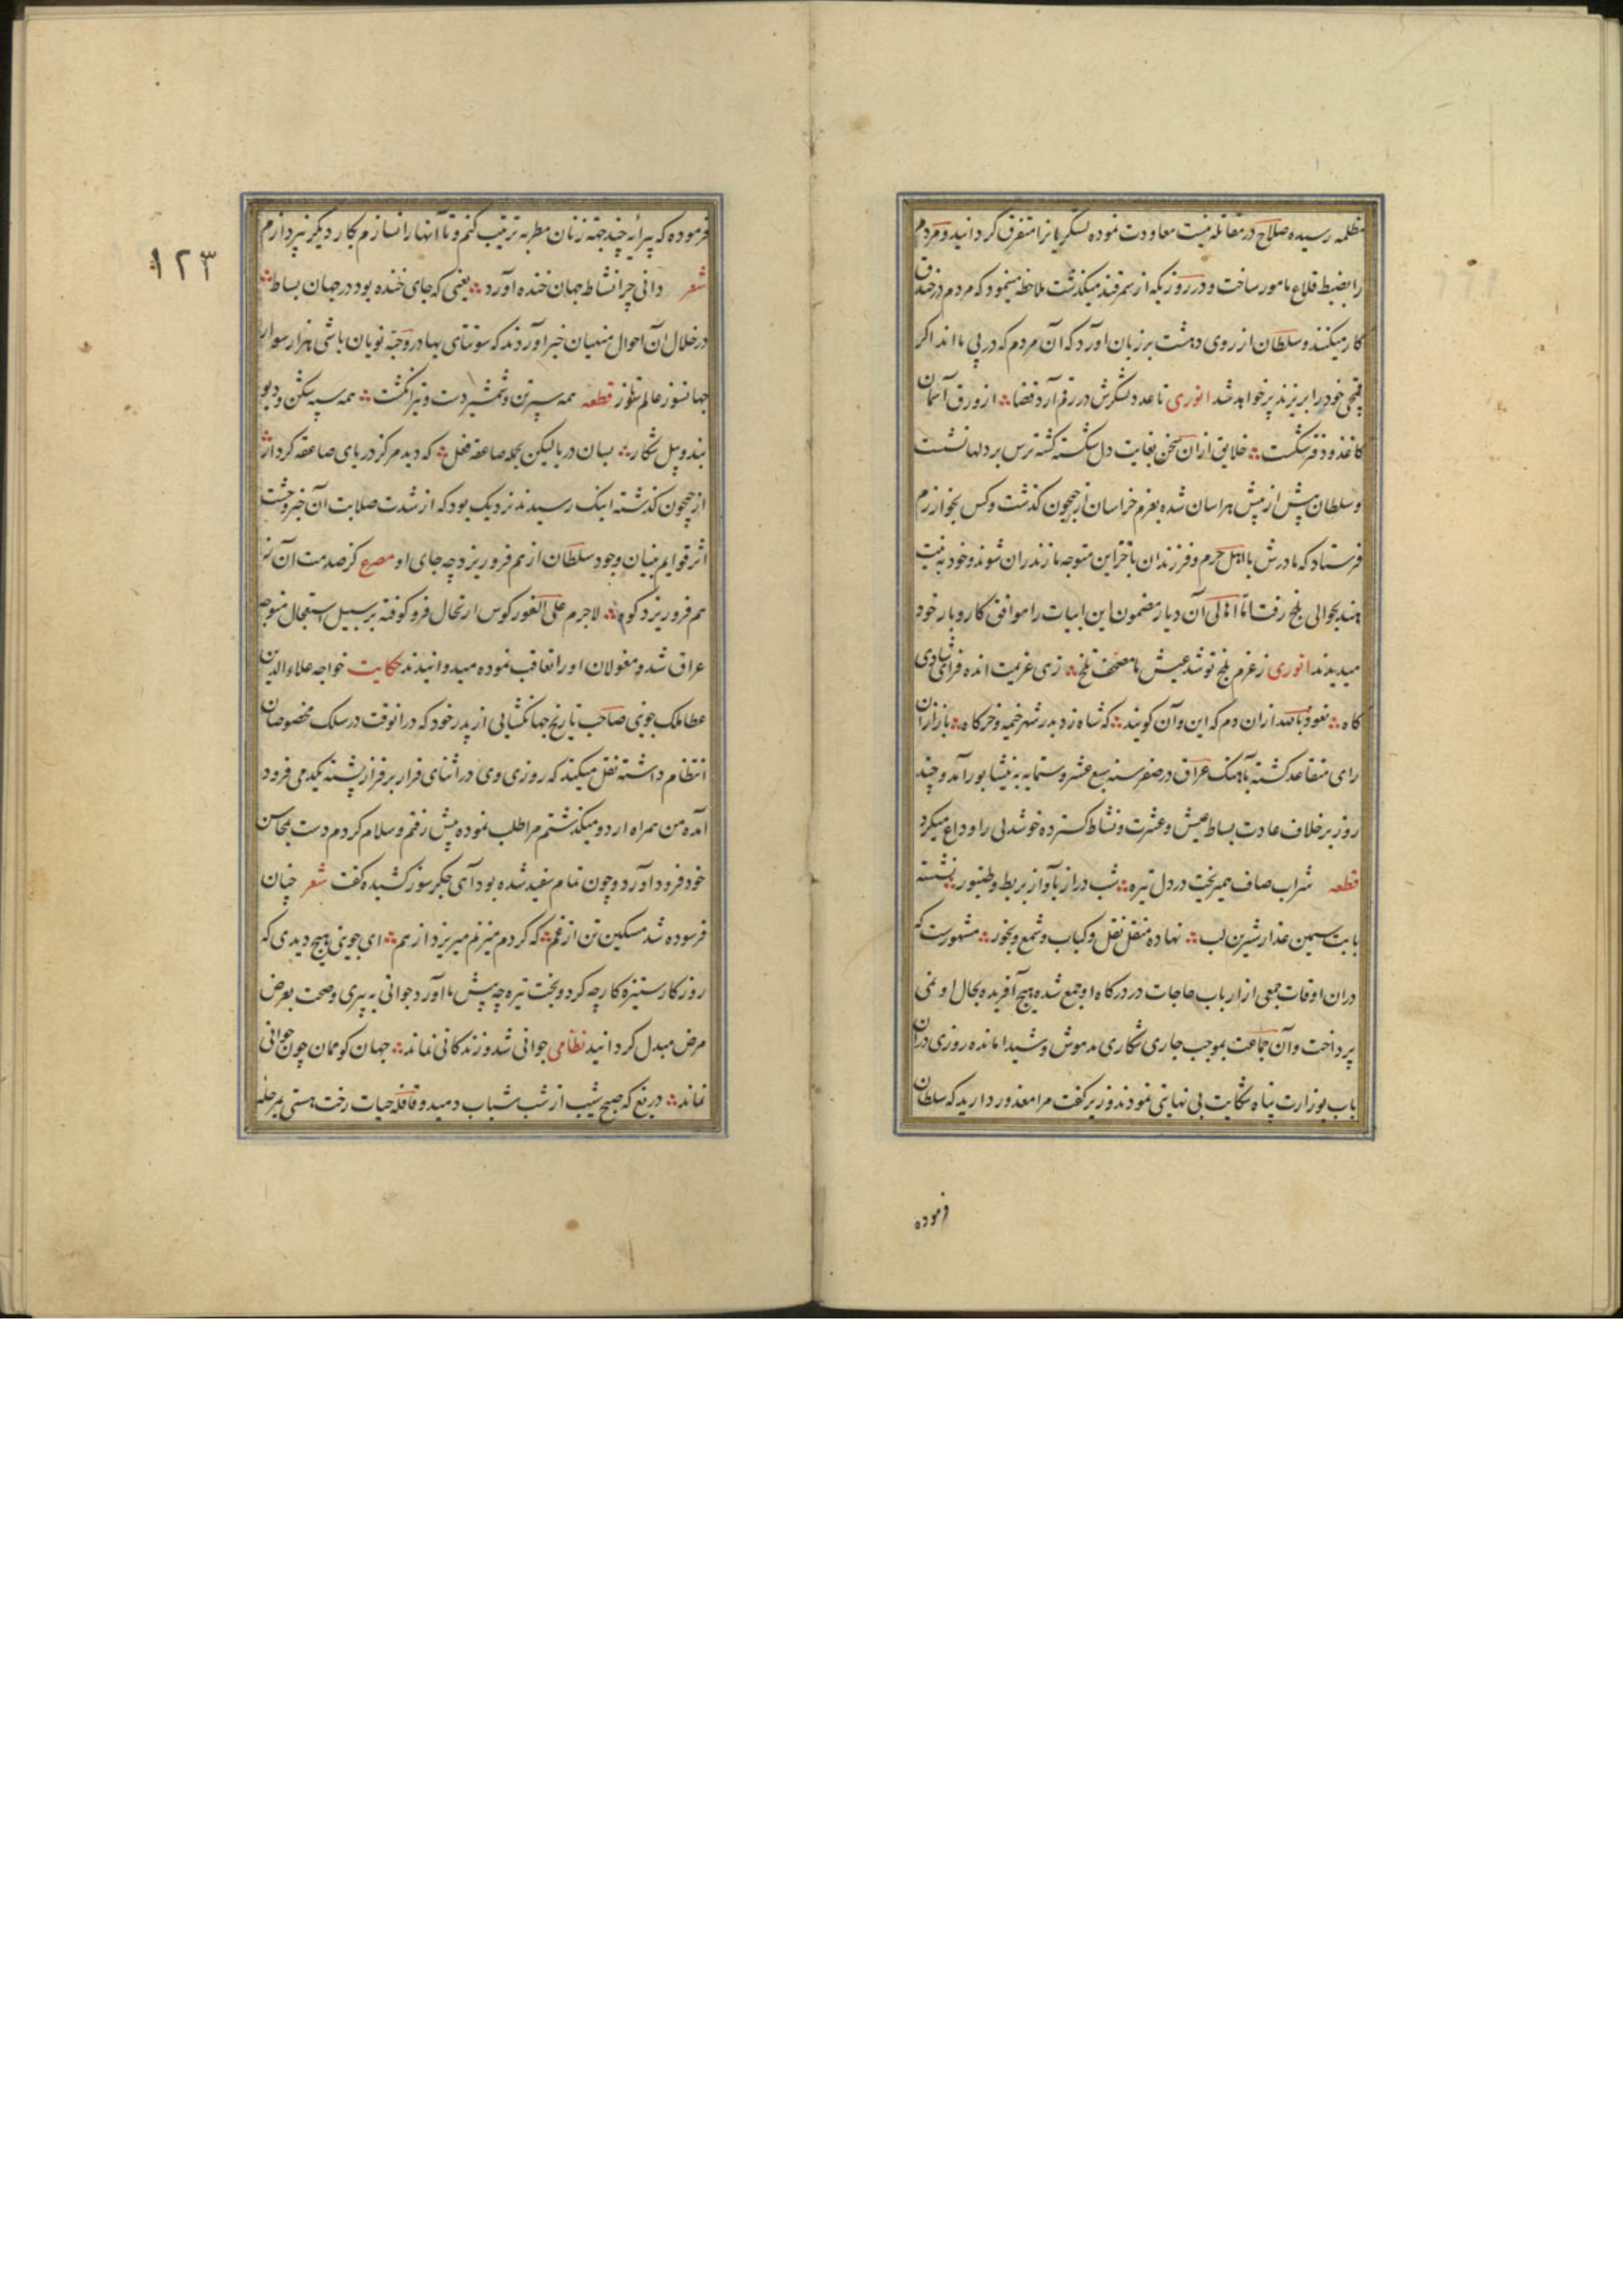 مظلمه رسیده صلاح در مقاتله نیست معاودت نموده لشکریانرا متفرق کردانید و مردم
را بضبط قلاع مامور ساخت و در روزیکه از سمرقند میکذشت ملاحظه مینمود که مردم در خندق
کار میکنند و سلطان از روی دهشت بر زبان آورد که آن مردم که در پی ما اند اکر
قمچی خود را بریزند پر خواهد شد انوری تا عدد لشکرش در رقم آرد قضا از ورق آسمان
کاغذ و دفتر شکست خلایق ازان سخن بغایت دل شکسته کشته ترس بر دلها نشست
و سلطان بیش از پیش هراسان شده بعزم خراسان از جیحون کذشت و کس بخوارزم
فرستاد که مادرش با اهل حرم و فرزندان با خزاین متوجه مازندران شوند و خود به نیت
هند بحوالی بلخ رفت اما اهالی آن دیار مضمون این ابیات را موافق کار و بار خود
میدیدند انوری ز عزم بلخ تو شد عیش ما مصحف بلخ زهی عزیمت انده فزای شادی
کاه نعوذ بالله ازان دم که این و آن کویند که شاه زد بدر شهر خیمه و خرکاه باز ازان
رای متقاعد کشته بآهنک عراق در صفر سنه سبع عشر و ستمایه به نیشابور آمد و چند
روز بر خلاف عادت بساط عیش و عشرت و نشاط کسترده خوشدلی را وداع میکرد
قطعه شراب صاف همیریخت در دل تیره شب دراز بآواز بربط و طنبور نشسته
با بت سیمین عذار شیرین لب نهاده منقل نقل و کباب و شمع و بخور مشهورست که
دران اوقات جمعی از ارباب حاجات در درکاه او جمع شده هیچ آفریده بحال او نمی
پرداخت و آن جماعت بموجب جاری شکاری مدهوش و شیدا مانده روزی دران
باب بوزارت پناه شکایت بی نهایتی نمودند وزیر کفت مرا معذور دارید که سلطان
فرموده
۱۲۳
فرموده که پیرایهٔ چند جهة زنان مطربه ترتیب کنم و تا آنها را نسازم بکار دیکر نپردازم
شعر دانی چرا نشاط جهان خنده آورد یعنی که جای خنده بود در جهان بساط
در خلال آن احوال منهیان خبر آوردند که سونتای بهادر و جبه نویان باشی هزار سوار
جهانسوز عالم قطعه همه سپر تن و شمشیر دست و تیر انکشت همه سپه شکن و دیو
بند و پیل شکار بسان دریا لیکن بحمله صاعقه فعل که دید هرکز دریای صاعقه کردار
از جیحون کذشته اینک رسیدند نزدیک بود که از شدت صلابت آن خبر وحشت
اثر قوایم بنیان وجود سلطان از هم فرو ریزد چه جای او مصرع کز صدمت آن ز
هم فرو ریزد کوه لاجرم علی الفور کوس ارتحال فرو کوفته بر سبیل استعجال متوجه
عراق شد و مغولان او را تعاقب نموده میدوانیدند حکایت خواجه علاء الدین
عطاملک جوینی صاحب تاریخ جهانکشایی از پدر خود که درانوقت در سلک مخصوصان
انتظام داشته نقل میکند که روزی وی در اثنای فرار بر فراز پشته یکدمی فرود
آمده من همراه اردو میکذشتم مرا طلب نموده پیش رفتم و سلام کردم دست بمحاسن
خود فرود آورد و چون تمام سفید شده بود آهی جکرسوز کشیده کفت شعر چنان
فرسوده شد مسکین تن از غم که کر دم میزنم میریزد از هم ای جوینی هیچ دیدی که
روزکار ستیزه کار چه کرد و بخت تیره چه پیش ما آورد جوانی به پیری و صحت بعرض
مرض مبدل کردانید نظامی جوانی شد و زندکانی نماند جهان کو ممان چون جوانی
نماند دریغ که صبح شیب از شب شباب دمید و قافله حیات رخت هستی بمرحله